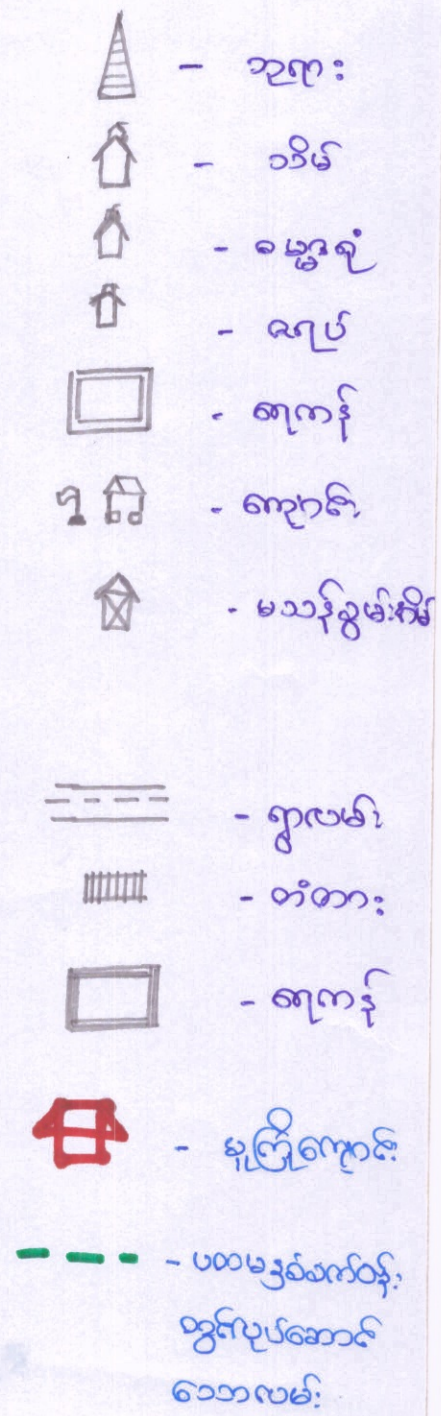 - ဘုရား
- သိမ်
- ဓမ္မာရုံ
- ဇရပ်
- ရေကန်
- ကျောင်း
- မသန်စွမ်းအိမ်
- ရွာလမ်း
- တံတား
- ရေကန်
- မူကြိုကျောင်း
- ပထမနှစ်စက်ဝန်း
တွင်လုပ်ဆောင်
သောလမ်း